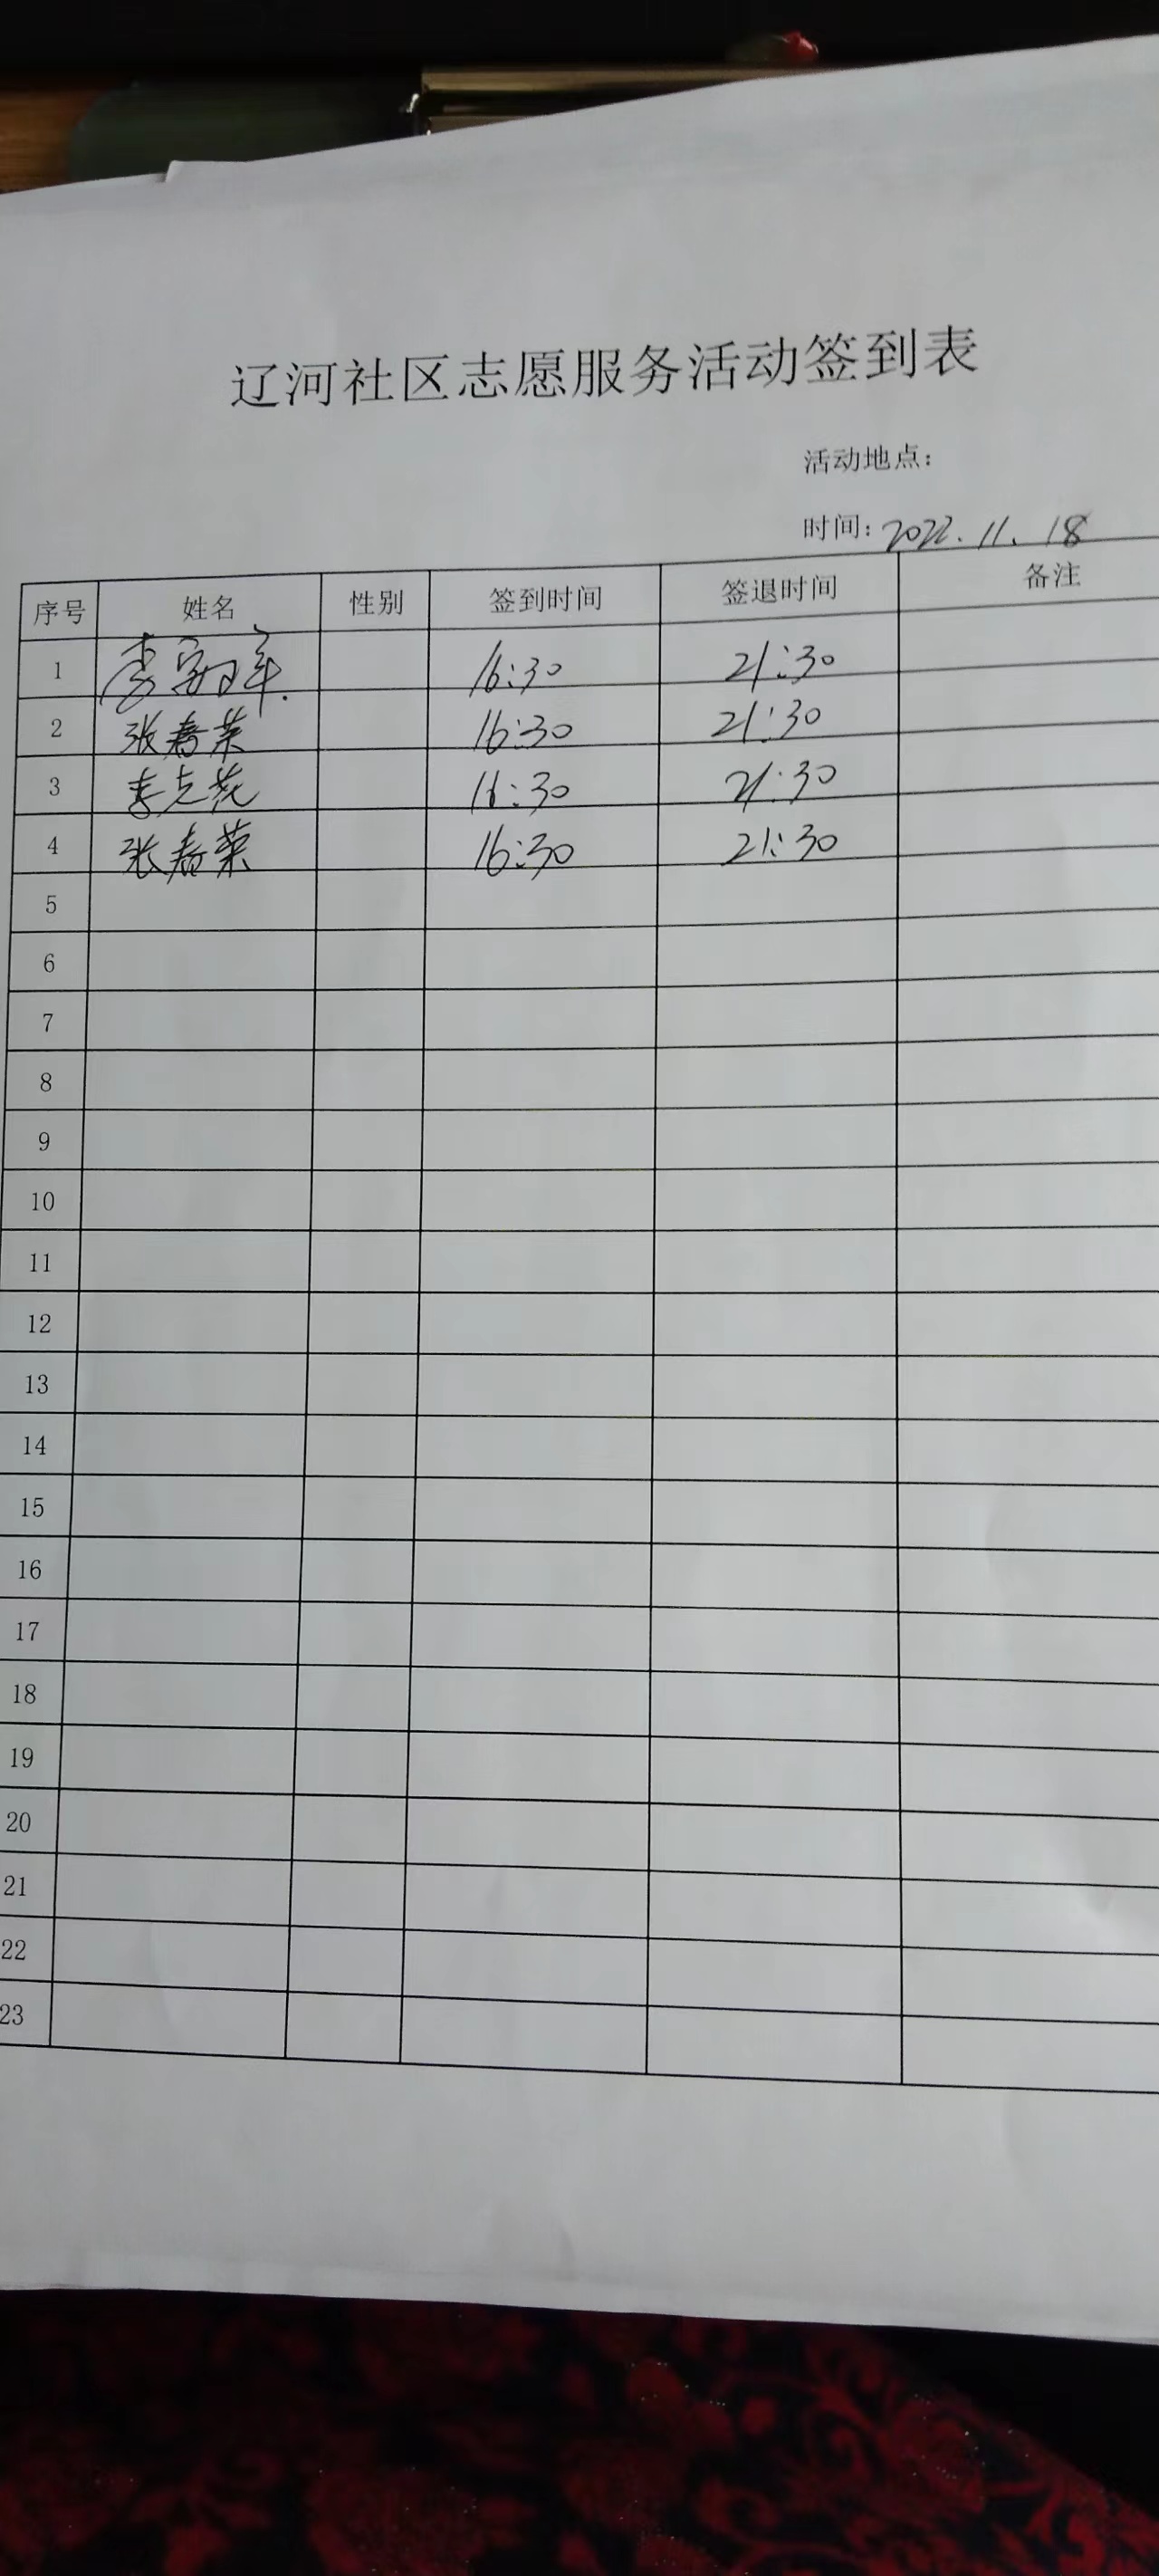 辽河社区志愿服务活动签到表
活动地点：
时间：2022.11.18
序号 姓名 性别 签到时间 签退时间 备注
1 李 16:30 21:30
2 张春荣 16:30 21:30
3 李克花 16:30 21:30
4 张春荣 16:30 21:30
5
6
7
8
9
10
11
12
13
14
15
16
17
18
19
20
21
22
23